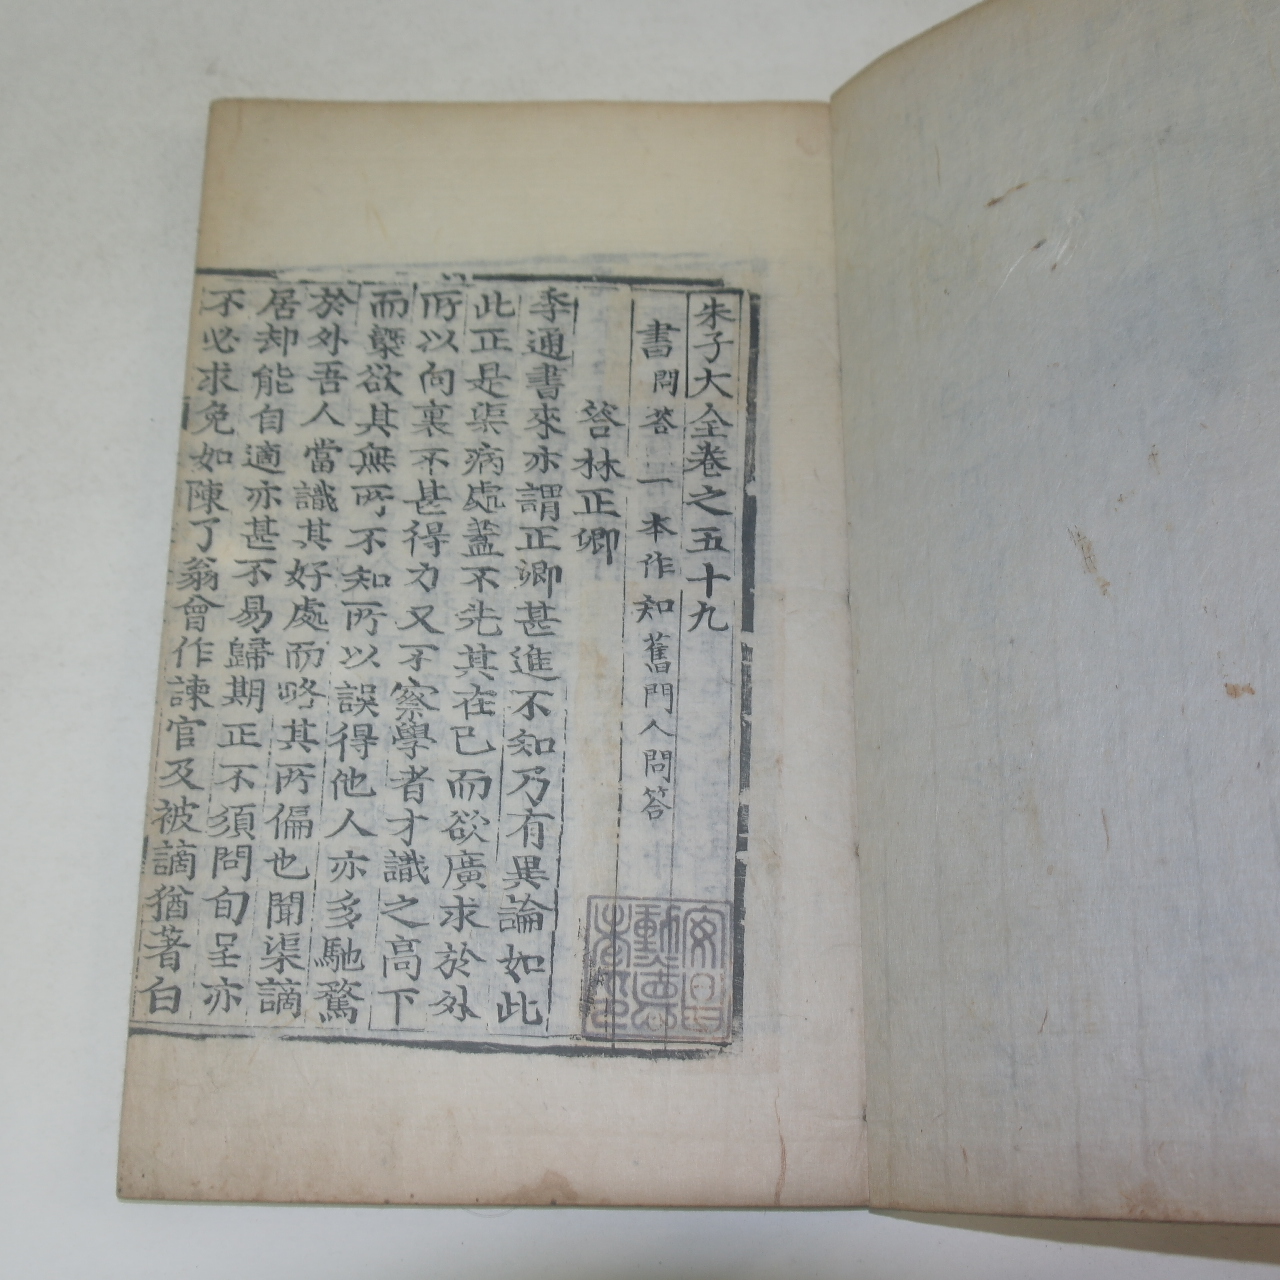 朱子大全卷之五十九
書問答 一本作知舊門人問答
答林正卿
季通書來亦謂正卿甚進不知乃有異論如此
此正是渠病處蓋不先其在己而欲廣求於外
所以向裏不甚得力又不察學者才識之高下
而槩欲其無所不知所以誤得他人亦多馳騖
於外吾人當識其好處而略其所偏也聞渠謫
居却能自適亦甚不易歸期正不須問旬呈亦
不必求免如陳了翁曾作諫官及被謫猶著白